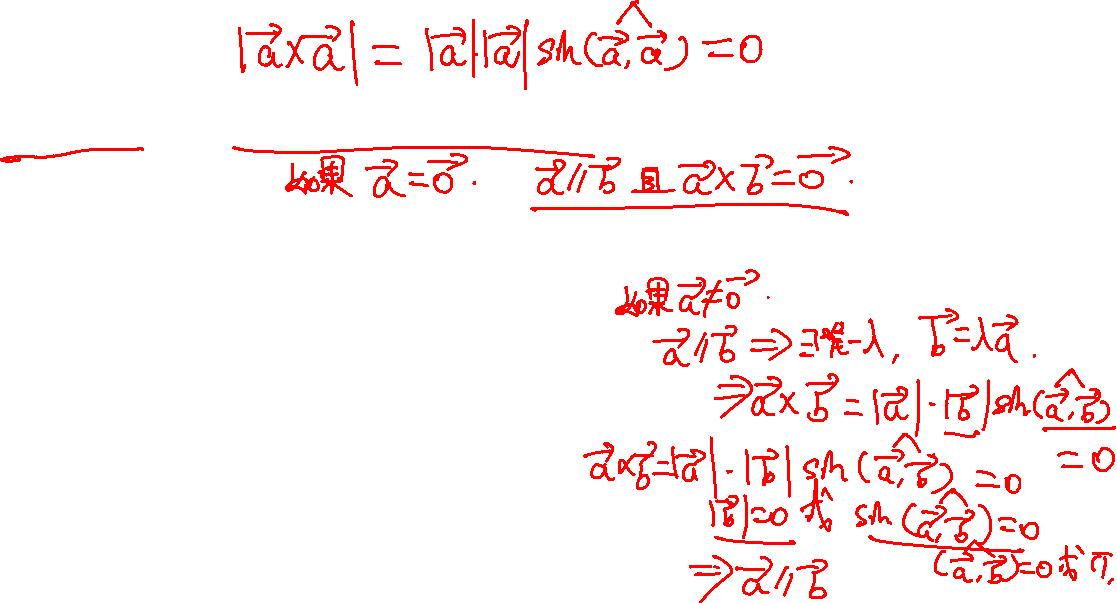 |a⃗×a⃗| = |a⃗|·|a⃗| sin(a⃗,^a⃗) = 0
如果 a⃗ = 0⃗. a⃗ // b⃗ 且 a⃗ × b⃗ = 0⃗.
如果 a⃗ ≠ 0⃗.
a⃗ // b⃗ ⇒ ∃唯一λ, b⃗ = λa⃗.
⇒ a⃗ × b⃗ = |a⃗|·|b⃗| sin(a⃗,^b⃗)
= 0
a⃗ × b⃗ = |a⃗|·|b⃗| sin(a⃗,^b⃗) = 0
|b⃗| = 0 或 sin(a⃗,^b⃗) = 0
(a⃗,^b⃗) = 0 或 π,
⇒ a⃗ // b⃗